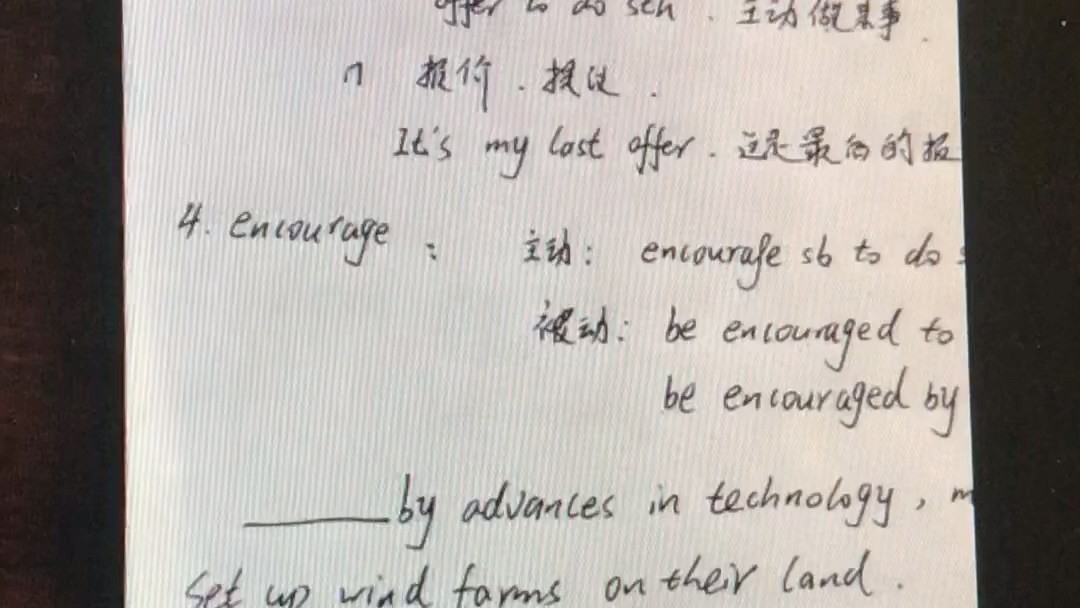 offer to do sth . 主动做某事 .
n 报价 . 提议 .
It's my last offer . 这是最后的报
4. encourage : 主动: encourage sb to do s
被动: be encouraged to
be encouraged by
______by advances in technology , m
set up wind farms on their land .